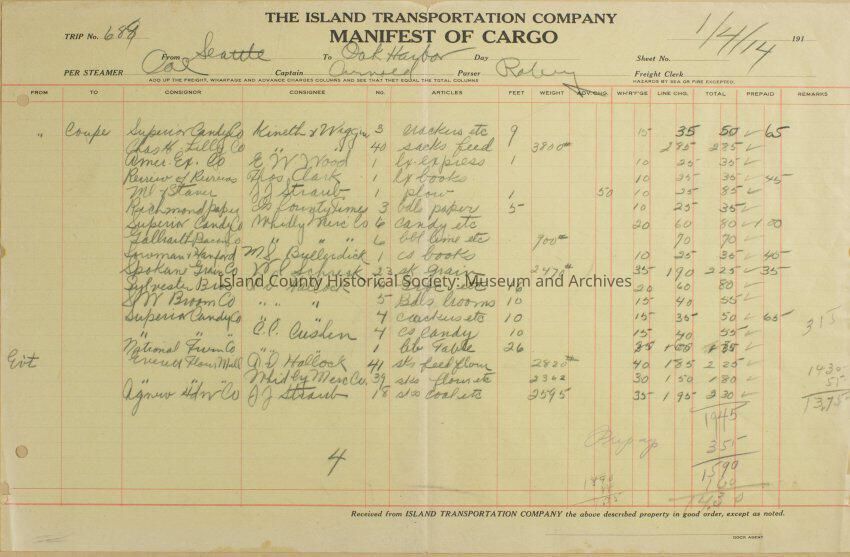 THE ISLAND TRANSPORTATION COMPANY
MANIFEST OF CARGO
1/4/14 191
TRIP No. 689 From Seattle To Oak Harbor Day Sheet No.
PER STEAMER Cal Captain Arnold Purser Freight Clerk
ADD UP THE FREIGHT, WHARFAGE AND ADVANCE CHARGES COLUMNS AND SEE THAT THEY EQUAL THE TOTAL COLUMNS HAZARDS BY SEA OR FIRE EXCEPTED.
FROM TO CONSIGNOR CONSIGNEE NO. ARTICLES FEET WEIGHT ADV. CHG. WH'R'F'GE LINE CHG. TOTAL PREPAID REMARKS
" Coupe Superior Candy Co Kineth & Wiggin 3 crackers etc 9 15 35 50 ✓ 65
Chas H. Lilly Co " " 40 sacks feed 3800# 285 285 ✓
Amer. Ex. Co E W Wood 1 bx express 1 10 25 35 ✓
Review of Reviews Clark 1 bx books 10 25 35 ✓ 45
J J Straub 1 plow 1 50 10 25 85 ✓
Richmond Paper Co Is County Times 3 bdls paper 5 10 25 35 ✓
Superior Candy Co Whidby Merc Co 6 candy etc 20 60 80 ✓ 1 00
Galbraith Bacon Co " " " 6 bbl lime etc 900# 70 70 ✓
Lowman & Hanford M S 1 cs books 10 25 35 ✓ 45
Spokane Grain Co 23 sk grain 2470# 35 190 225 ✓ 35
Island County Historical Society: Museum and Archives
Sylvester Bros Hallock 6 20 60 80 ✓
S W Broom Co " " " 5 bdls brooms 10 15 40 55 ✓
Superior Candy Co " " 4 crackers etc 10 15 35 50 ✓ 65 315
" " " C. C. Cushen 4 cs candy 10 15 40 55 ✓
National Furn Co " " 1 Table 26 35 1 00 1 35 ✓
Evt Everett Flour Mill A D Hallock 41 sks feed flour 2820# 40 185 2 25 ✓ 1430
" " " Whidby Merc Co. 39 sks flour etc 2362 30 1 50 1 80 ✓ 55
Agnew Hdw Co J J Straub 18 sks coal etc 2595 35 1 95 2 30 ✓ 13,75
1945
Prepay 355
4 1590
1490 160
1430
Received from ISLAND TRANSPORTATION COMPANY the above described property in good order, except as noted.
DOCK AGENT